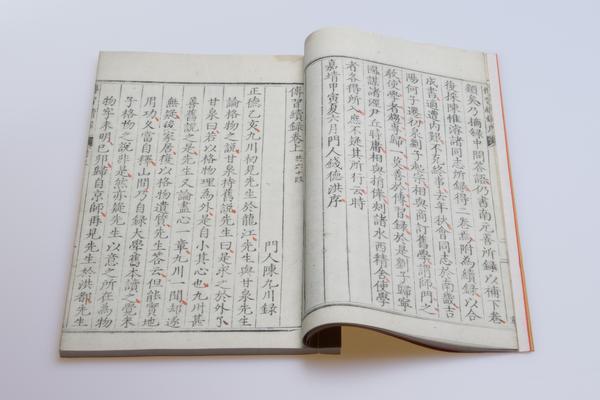 類矣乃摘錄中問答語仍書南元善所錄以補下卷
復採陳惟濬諸同志所錄得二卷焉附為續錄以合
成書適遭內艱不克終事去年秋會同志於南畿吉
陽何子遷初泉劉子起宗相與商訂舊學謂師門之
教使學者趨專歸一莫善於傳習錄於是劉子歸寧
國謀諸涇尹丘時庸相與捐俸刻諸水西精舍使學
者各得所入庶不疑其所行云時
嘉靖甲寅夏六月門人錢德洪序
傳習續錄卷上 共六十段
門人陳九川錄
正德乙亥九川初見先生於龍江先生與甘泉先生
論格物之說甘泉持舊說先生曰是求之於外了
甘泉曰若以格物理為外是自小其心也九川甚
喜舊說之是先生又論盡心一章九川一聞卻遂
無疑後家居復以格物遺質先生答云但能實地
用功久當自釋山間乃自錄大學舊本讀之覺朱
子格物之說非是然亦疑先生以意之所在為物
物字未明己卯歸自京師再見先生於洪都先生